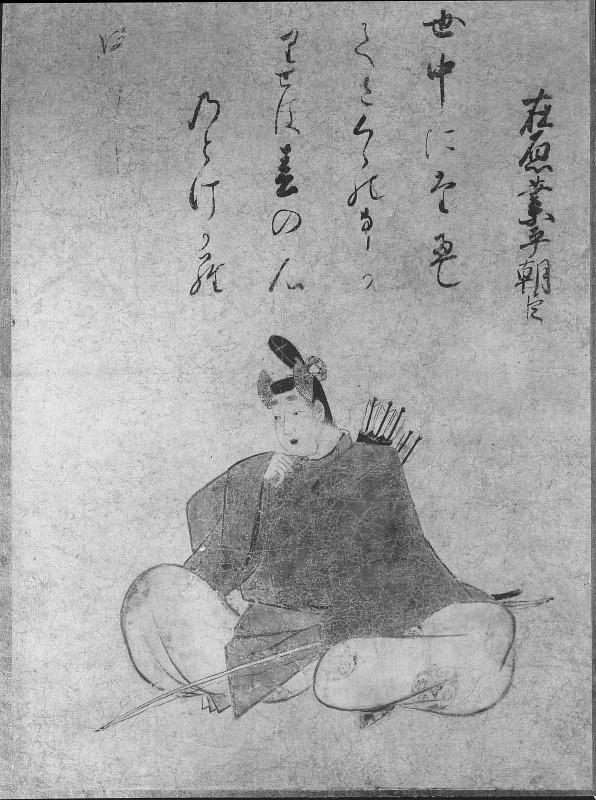 在原業平朝臣
世中にたえ
てさくらのなか
りせは春の心
のとけから